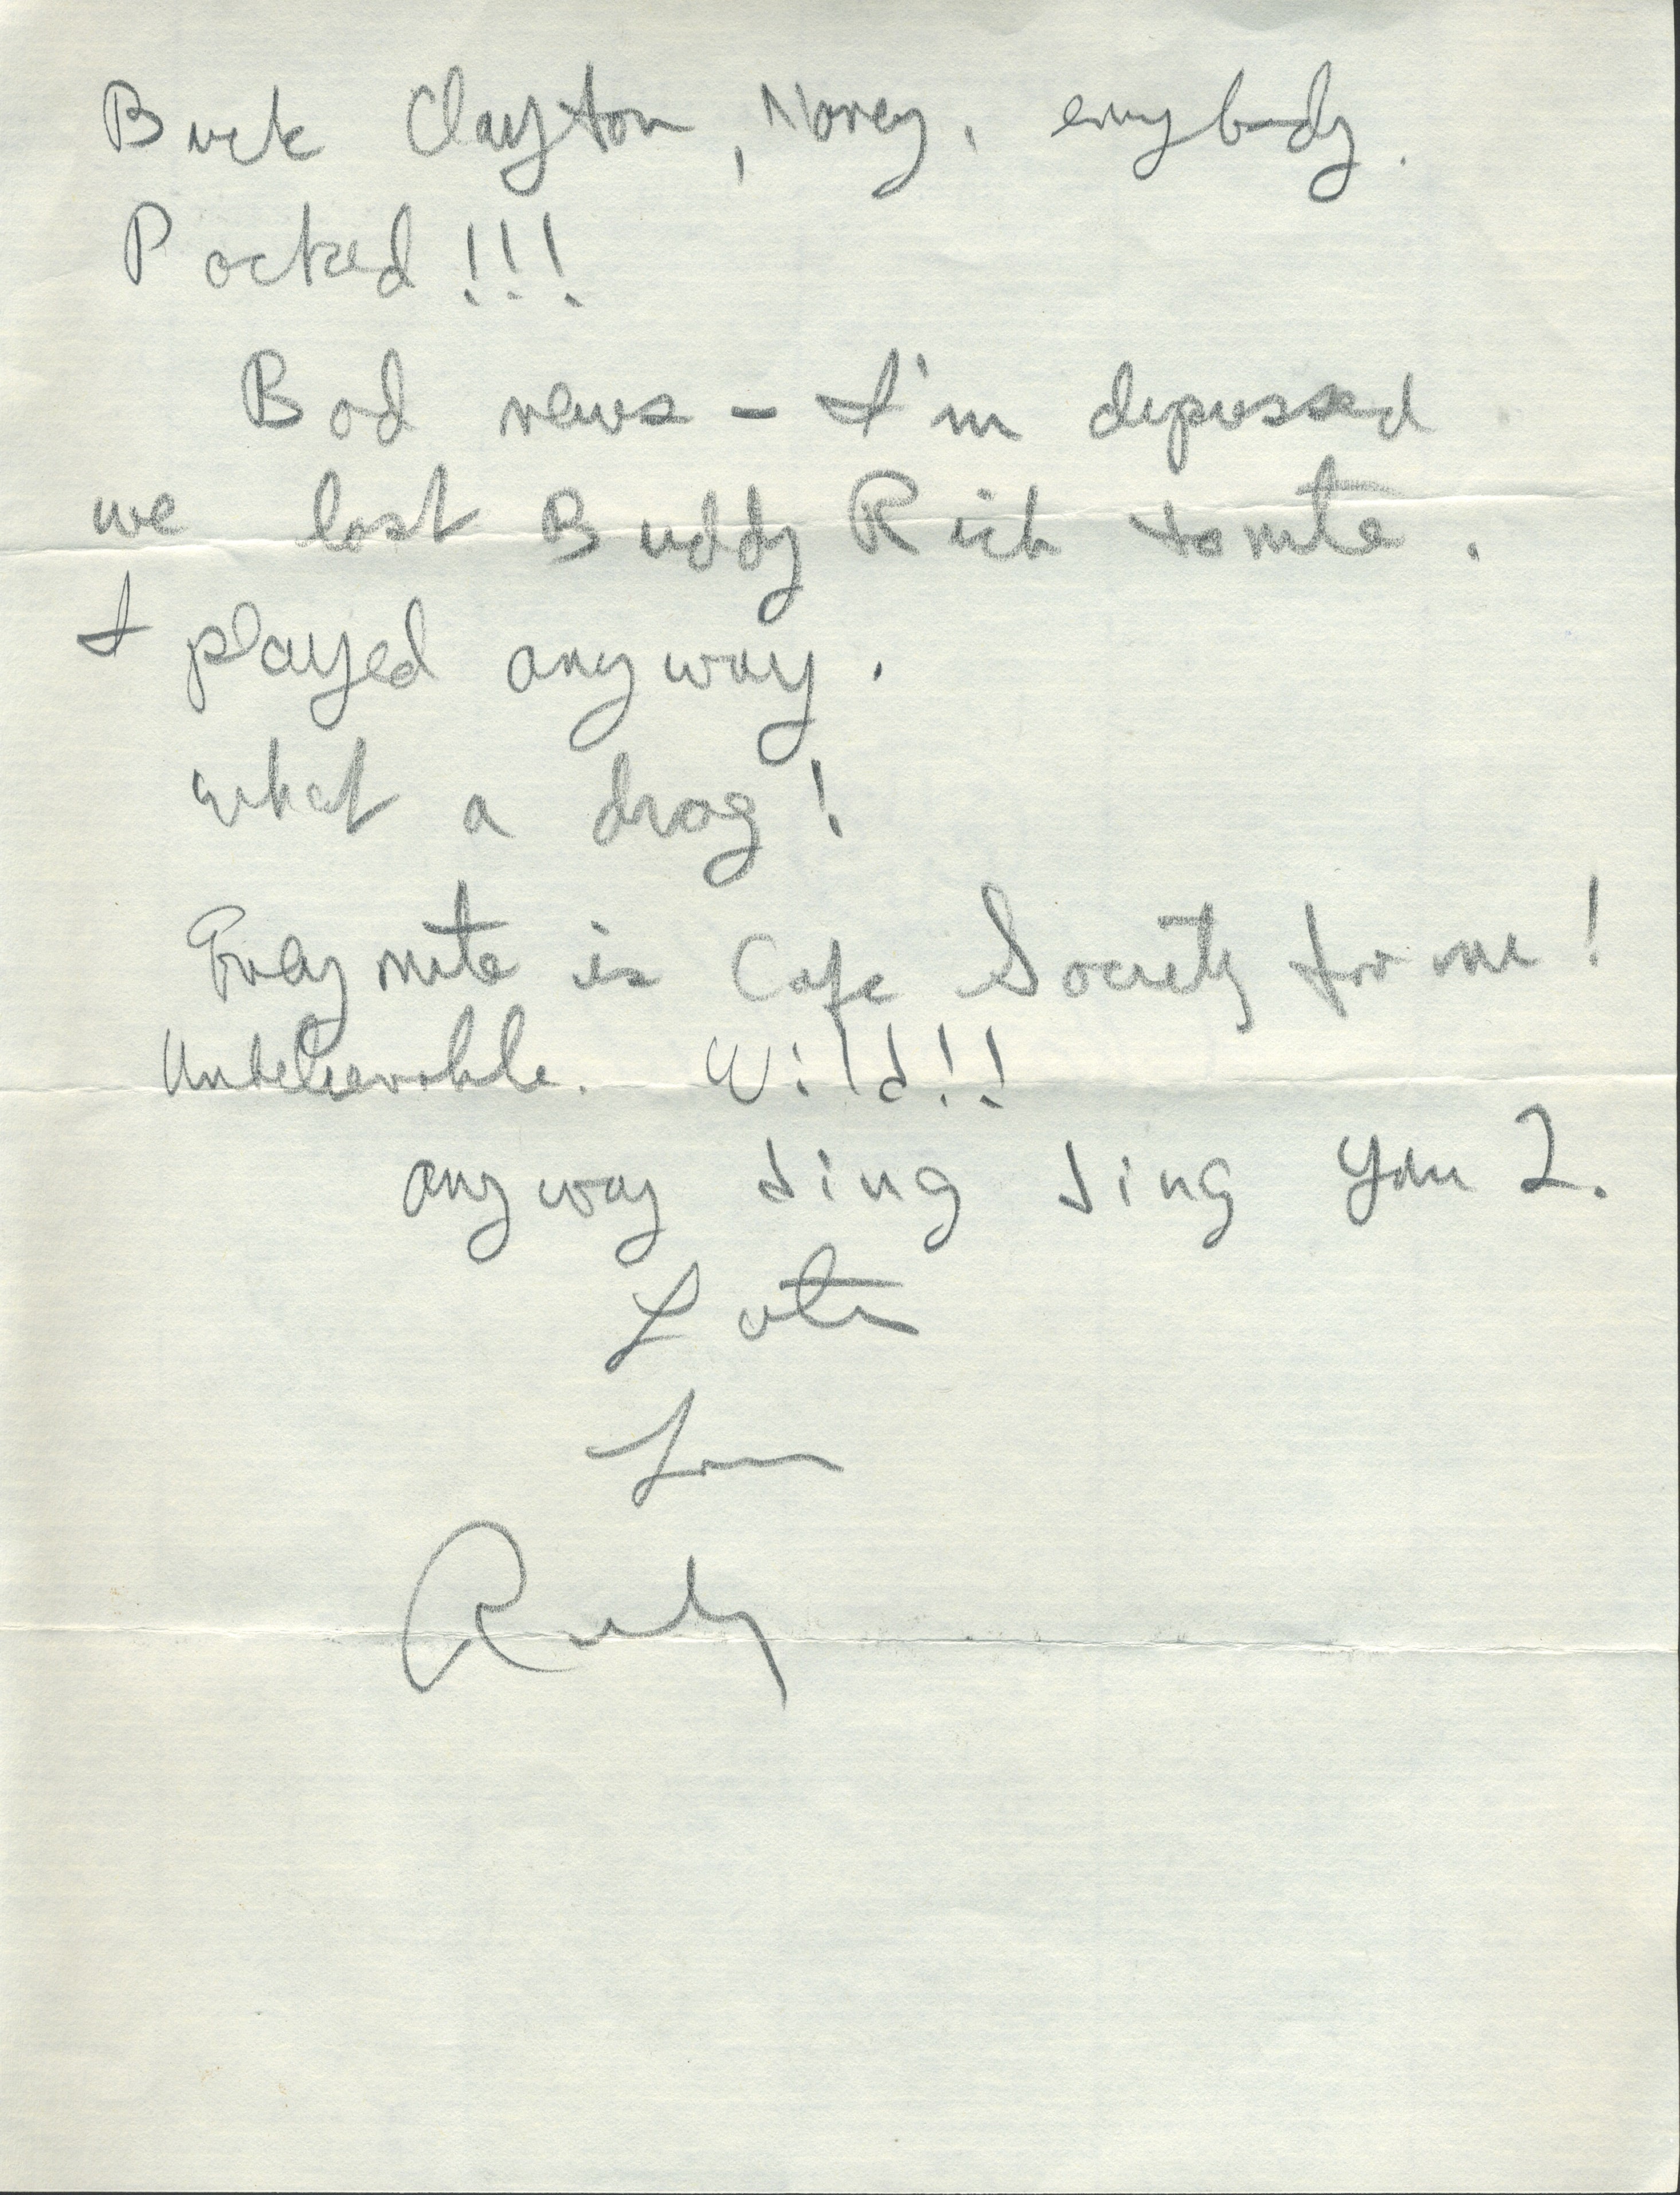 Buck Clayton, Norey, everybody.
Packed!!!
Bad news – I'm depressed
we lost Buddy Rich tonite.
I played anyway.
what a drag!
Every nite is Cafe Society for me!
Unbelievable. Wild!!
anyway ding ding you 2.
Later
Love
Rudy